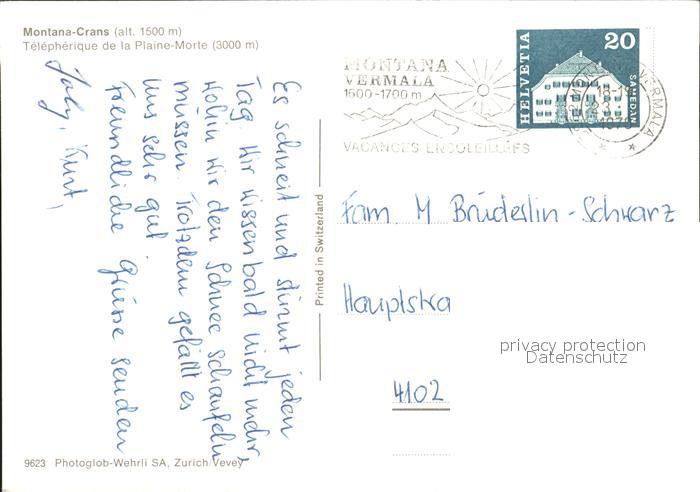 Montana-Crans (alt. 1500 m)
Téléphérique de la Plaine-Morte (3000 m)
Es schneit und stürmt jeden
Tag. Wir wissen bald nicht mehr,
wohin wir den Schnee schaufeln
müssen. Trotzdem gefällt es
uns sehr gut.
Freundliche Grüsse senden
Kurt,
9623 Photoglob-Wehrli SA, Zurich Vevey
Printed in Switzerland
MONTANA
VERMALA
1500-1700 m
VACANCES ENSOLEILLÉES
HELVETIA
20
SAMEDAN
VERMALA
Fam M Brüderlin-Schwarz
Hauptstra
4102
privacy protection
Datenschutz